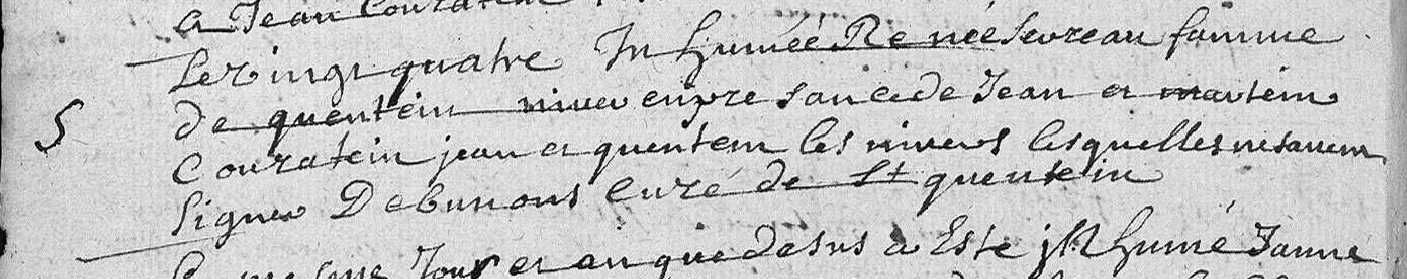 a Jean Couratein
Le vingt quatre In humée Renée sevreau famme
de quentein niver en pre sance de Jean et martein
Couratein jean et quentein les nivers lesquelles ne savent
signer Debunons Curé de St quentein
5
Le mesme Jour et an que desus a Este jn humé Janne